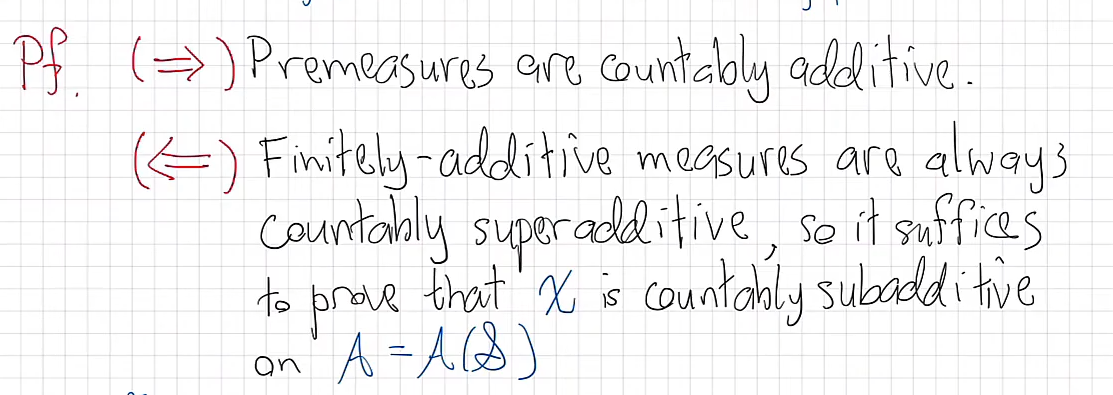 Pf. (⇒) Premeasures are countably additive.
(⇐) Finitely-additive measures are always
countably superadditive, so it suffices
to prove that χ is countably subadditive
on A = A(S)